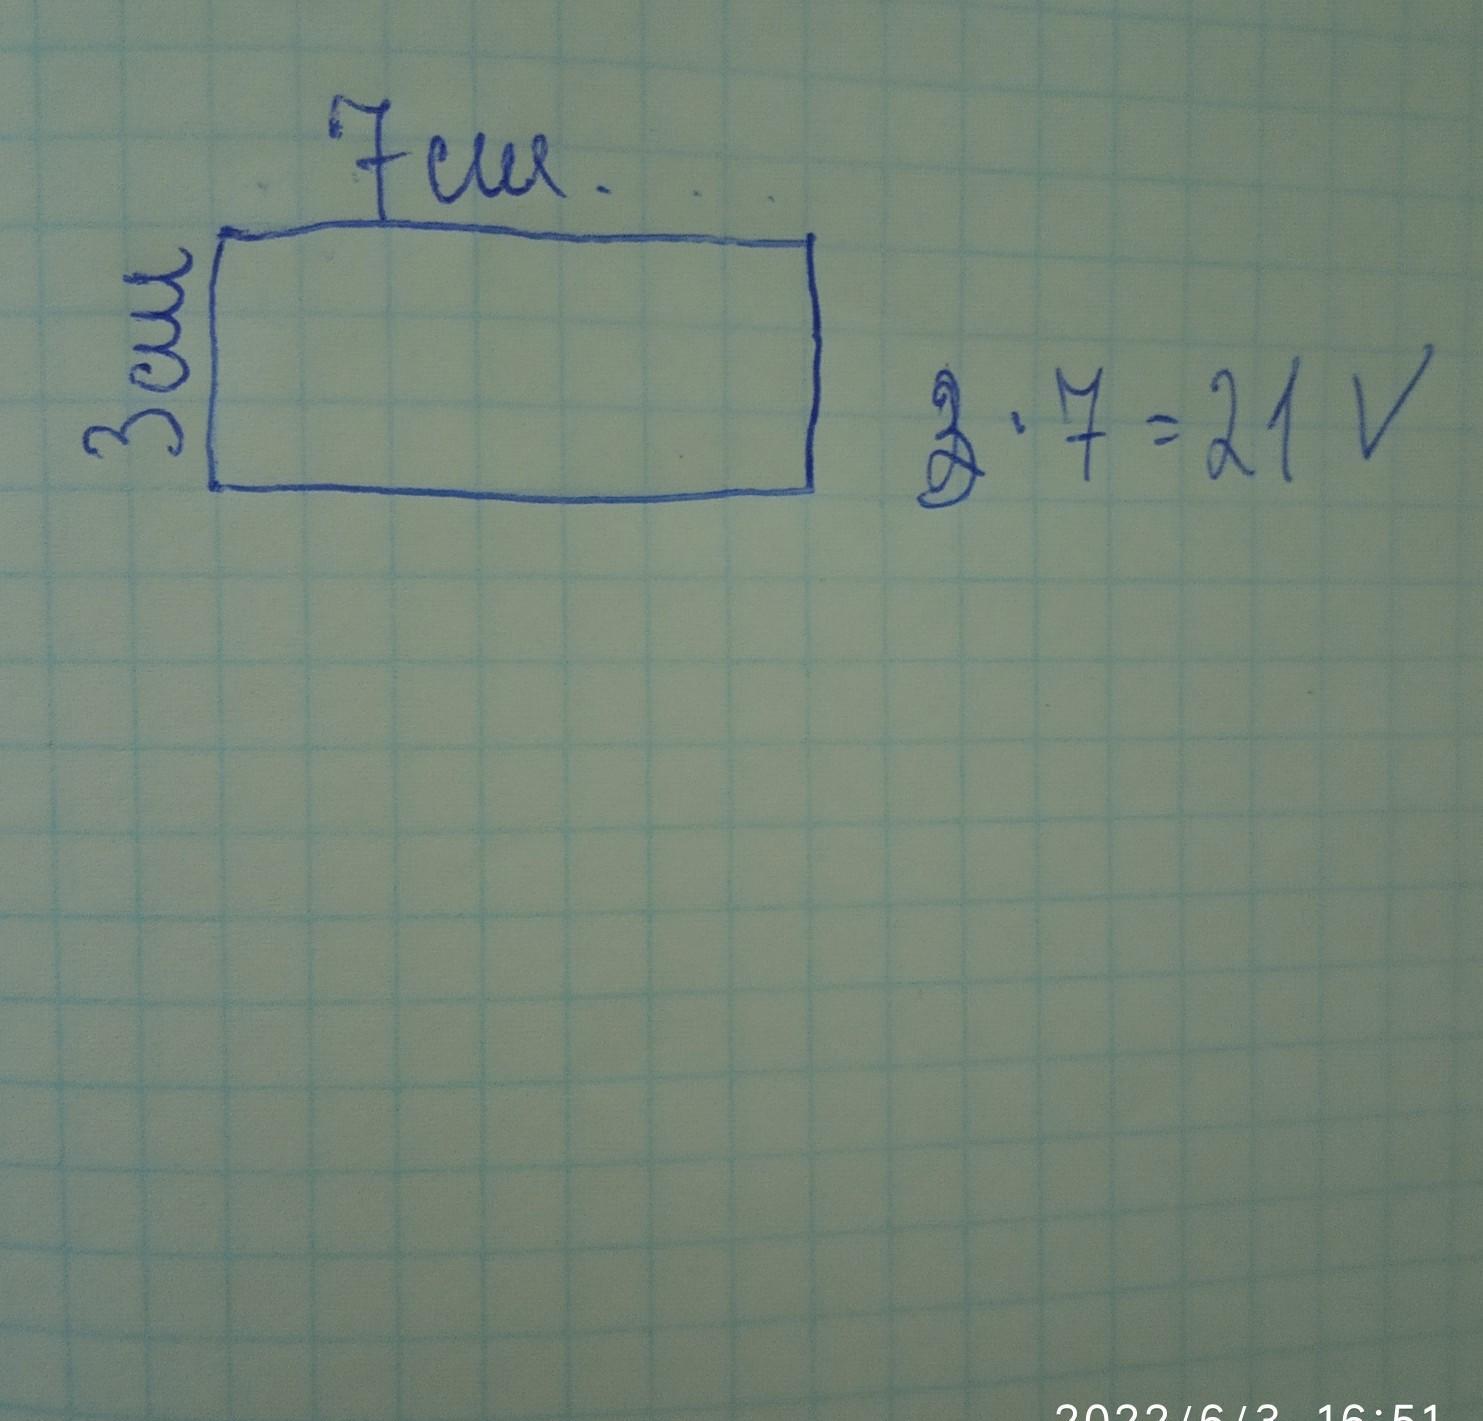 7 см.
3 см
3 · 7 = 21 √
2022/6/3 16:51